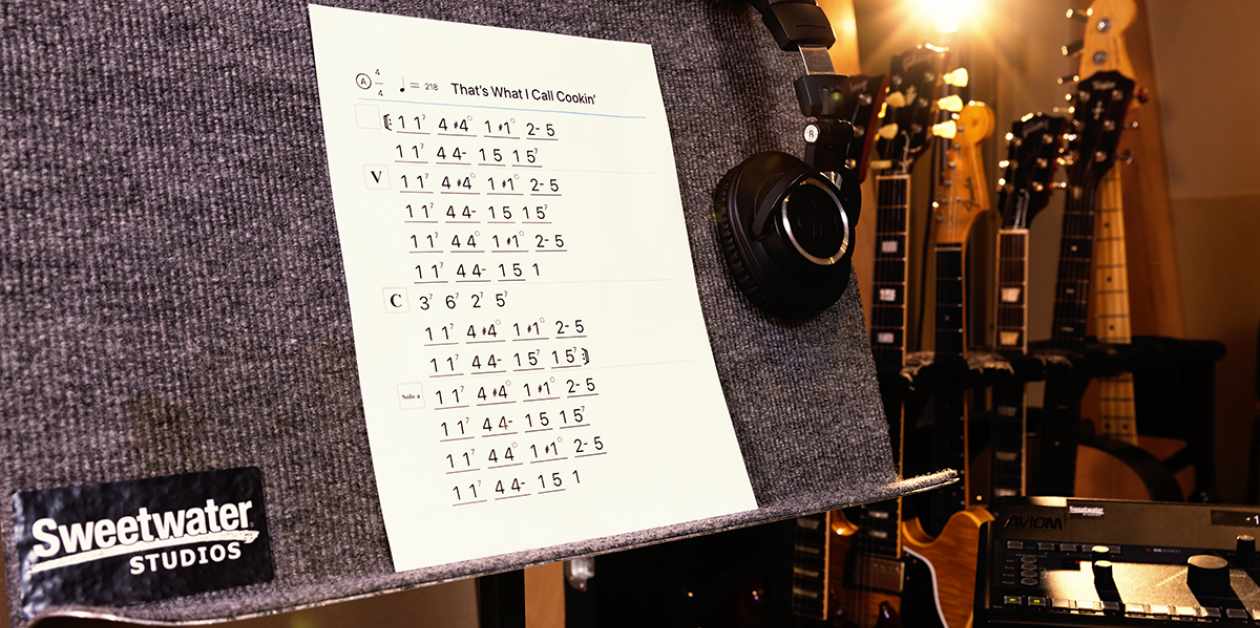 Ⓐ 4/4 ♩= 218 That's What I Call Cookin'
𝄆 1 1⁷ 4 #4° 1 #1° 2- 5
1 1⁷ 4 4- 1 5 1 5⁷
V 1 1⁷ 4 #4° 1 #1° 2- 5
1 1⁷ 4 4- 1 5 1 5⁷
1 1⁷ 4 4° 1 #1° 2- 5
1 1⁷ 4 4- 1 5 1
C 3⁷ 6⁷ 2⁷ 5⁷
1 1⁷ 4 #4° 1 #1° 2- 5
1 1⁷ 4 4- 1 5⁷ 1 5⁷ 𝄇
1 1⁷ 4 #4° 1 #1° 2- 5
1 1⁷ 4 4- 1 5 1 5⁷
1 1⁷ 4 4° 1 #1° 2- 5
1 1⁷ 4 4- 1 5 1
R
Sweetwater
STUDIOS
AVIOM
Sweetwater